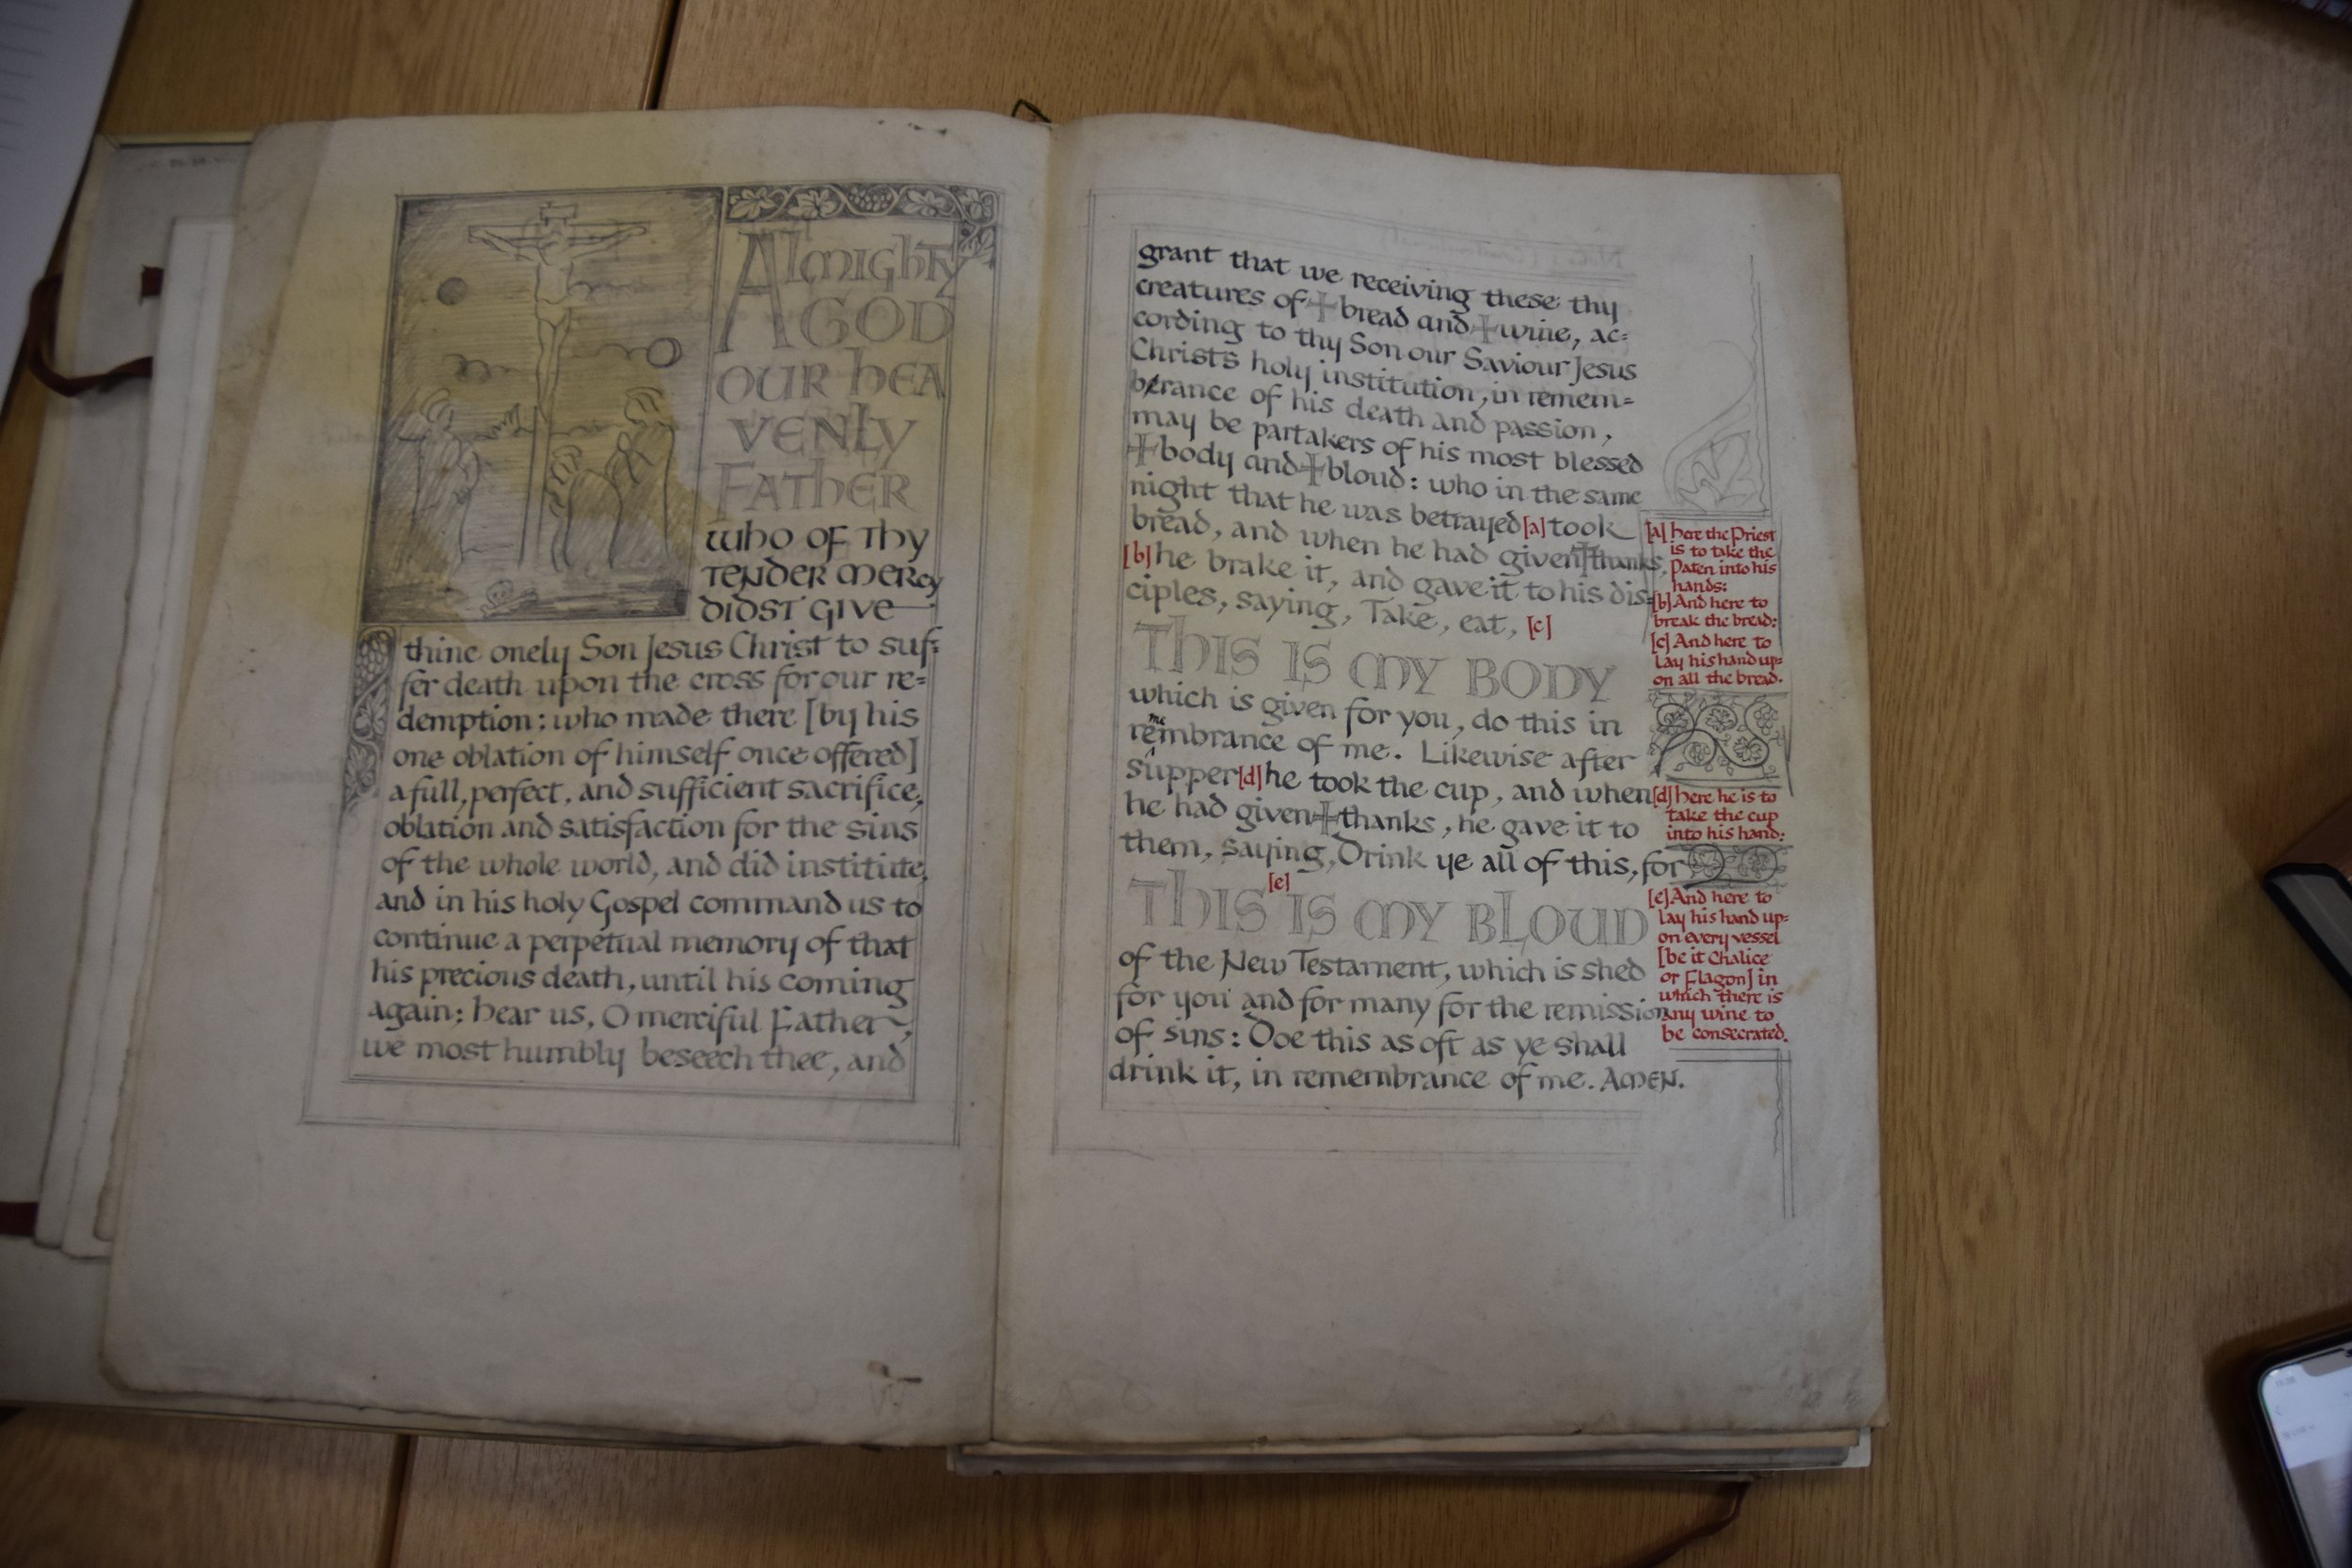 Almighty
GOD
OUR HEA
VENLY
FATHER
WHO OF THY
TENDER MERCY
DIDST GIVE
thine onely Son Jesus Christ to suf=
fer death upon the cross for our re=
demption: who made there [by his
one oblation of himself once offered]
a full, perfect, and sufficient sacrifice,
oblation and satisfaction for the sins
of the whole world, and did institute,
and in his holy Gospel command us to
continue a perpetual memory of that
his precious death, until his coming
again: hear us, O merciful Father,
we most humbly beseech thee, and
grant that we receiving these thy
creatures of + bread and + wine, ac=
cording to thy Son our Saviour Jesus
Christs holy institution, in remem=
brance of his death and passion,
may be partakers of his most blessed
+ body and + bloud: who in the same
night that he was betrayed [a] took
bread, and when he had given + thanks,
[b] he brake it, and gave it to his dis=
ciples, saying, Take, eat, [c]
THIS IS MY BODY
which is given for you, do this in
remembrance of me. Likewise after
supper [d] he took the cup, and when
he had given + thanks, he gave it to
them, saying, Drink ye all of this, for
[e]
THIS IS MY BLOUD
of the New Testament, which is shed
for you and for many for the remission
of sins: Doe this as oft as ye shall
drink it, in remembrance of me. AMEN.
[a] here the Priest
is to take the
Paten into his
hands:
[b] And here to
break the bread:
[c] And here to
lay his hand up=
on all the bread.
[d] here he is to
take the cup
into his hand:
[e] And here to
lay his hand up=
on every vessel
[be it Chalice
or Flagon] in
which there is
any wine to
be consecrated.